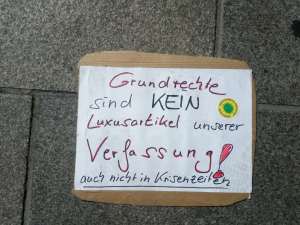 Grundrechte
sind KEIN
Luxusartikel unserer
Verfassung!
auch nicht in Krisenzeiten